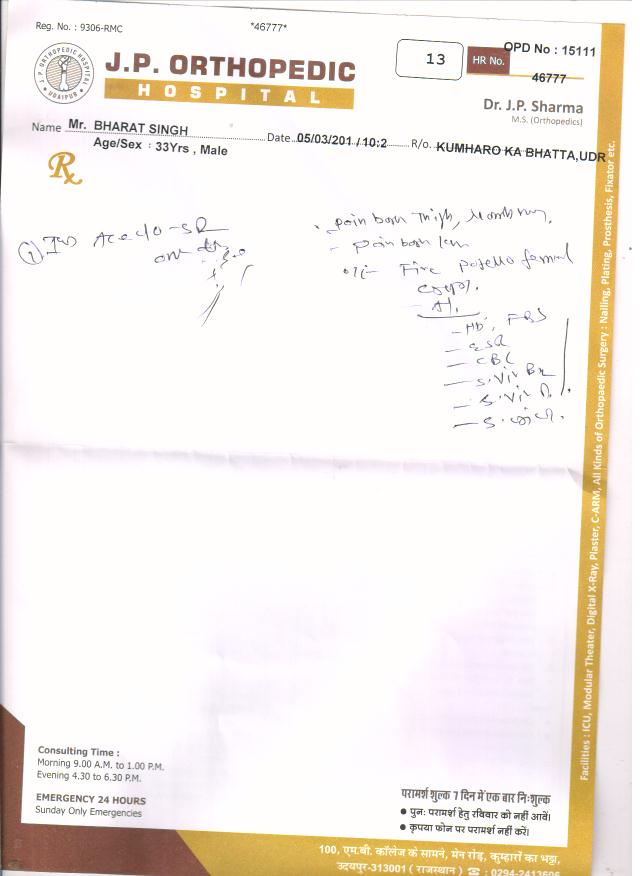 Reg. No. : 9306-RMC
*46777*
J.P. ORTHOPEDIC HOSPITAL UDAIPUR
J.P. ORTHOPEDIC
HOSPITAL
13
HR No.
OPD No : 15111
46777
Dr. J.P. Sharma
M.S. (Orthopedics)
Name Mr. BHARAT SINGH Date 05/03/201 / 10:2 R/o. KUMHARO KA BHATTA,UDR
Age/Sex : 33Yrs , Male
Rx
pain both Thigh,
① Aceclo-SR
- pain both
Fine patello femoral
- HB, FBS
- ESR
- CBC
- S. Vit B12
- S. Vit D.
Facilities : ICU, Modular Theater, Digital X-Ray, Plaster, C-ARM, All Kinds of Orthopaedic Surgery : Nailing, Plating, Prosthesis, Fixator etc.
Consulting Time :
Morning 9.00 A.M. to 1.00 P.M.
Evening 4.30 to 6.30 P.M.
EMERGENCY 24 HOURS
Sunday Only Emergencies
परामर्श शुल्क 7 दिन में एक बार निःशुल्क
● पुनः परामर्श हेतु रविवार को नहीं आवें।
● कृपया फोन पर परामर्श नहीं करें।
100, एम.बी. कॉलेज के सामने, मेन रोड़, कुम्हारों का भट्टा,
उदयपुर-313001 ( राजस्थान ) ☎ : 0294-2413606